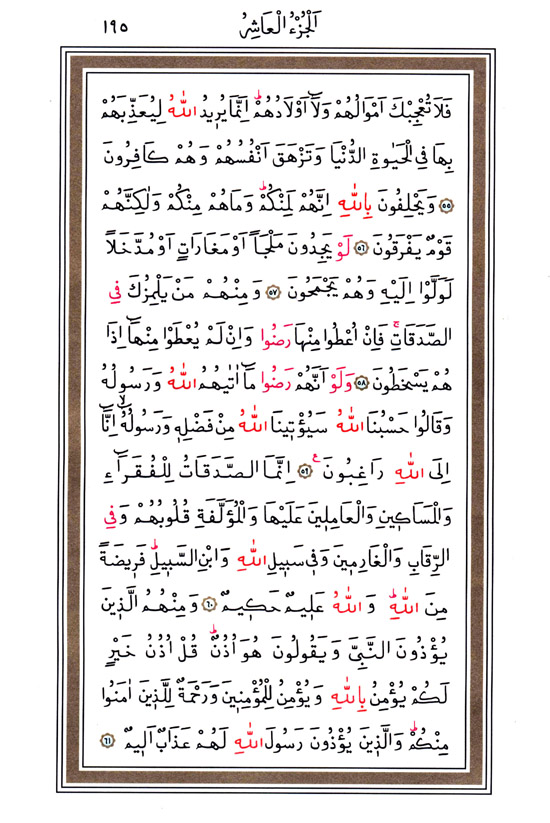 اَلْجُزْءُ الْعَاشِرُ ١٩٥
فَلَا تُعْجِبْكَ اَمْوَالُهُمْ وَلَٓا اَوْلَادُهُمْۜ اِنَّمَا يُرٖيدُ اللّٰهُ لِيُعَذِّبَهُمْ
بِهَا فِي الْحَيٰوةِ الدُّنْيَا وَتَزْهَقَ اَنْفُسُهُمْ وَهُمْ كَافِرُونَ
﴿٥٥﴾ وَيَحْلِفُونَ بِاللّٰهِ اِنَّهُمْ لَمِنْكُمْۜ وَمَا هُمْ مِنْكُمْ وَلٰكِنَّهُمْ
قَوْمٌ يَفْرَقُونَ ﴿٥٦﴾ لَوْ يَجِدُونَ مَلْجَـًٔا اَوْ مَغَارَاتٍ اَوْ مُدَّخَلًا
لَوَلَّوْا اِلَيْهِ وَهُمْ يَجْمَحُونَ ﴿٥٧﴾ وَمِنْهُمْ مَنْ يَلْمِزُكَ فِي
الصَّدَقَاتِۚ فَاِنْ اُعْطُوا مِنْهَا رَضُوا وَاِنْ لَمْ يُعْطَوْا مِنْهَٓا اِذَا
هُمْ يَسْخَطُونَ ﴿٥٨﴾ وَلَوْ اَنَّهُمْ رَضُوا مَٓا اٰتٰيهُمُ اللّٰهُ وَرَسُولُهُ
وَقَالُوا حَسْبُنَا اللّٰهُ سَيُؤْتٖينَا اللّٰهُ مِنْ فَضْلِهٖ وَرَسُولُهُٓۙ اِنَّٓا
اِلَى اللّٰهِ رَاغِبُونَ ﴿٥٩﴾ اِنَّمَا الصَّدَقَاتُ لِلْفُقَرَٓاءِ
وَالْمَسَاكٖينِ وَالْعَامِلٖينَ عَلَيْهَا وَالْمُؤَلَّفَةِ قُلُوبُهُمْ وَفِي
الرِّقَابِ وَالْغَارِمٖينَ وَفٖي سَبٖيلِ اللّٰهِ وَابْنِ السَّبٖيلِۜ فَرٖيضَةً
مِنَ اللّٰهِۜ وَاللّٰهُ عَلٖيمٌ حَكٖيمٌ ﴿٦٠﴾ وَمِنْهُمُ الَّذٖينَ
يُؤْذُونَ النَّبِيَّ وَيَقُولُونَ هُوَ اُذُنٌۜ قُلْ اُذُنُ خَيْرٍ
لَكُمْ يُؤْمِنُ بِاللّٰهِ وَيُؤْمِنُ لِلْمُؤْمِنٖينَ وَرَحْمَةٌ لِلَّذٖينَ اٰمَنُوا
مِنْكُمْۜ وَالَّذٖينَ يُؤْذُونَ رَسُولَ اللّٰهِ لَهُمْ عَذَابٌ اَلٖيمٌ ﴿٦١﴾